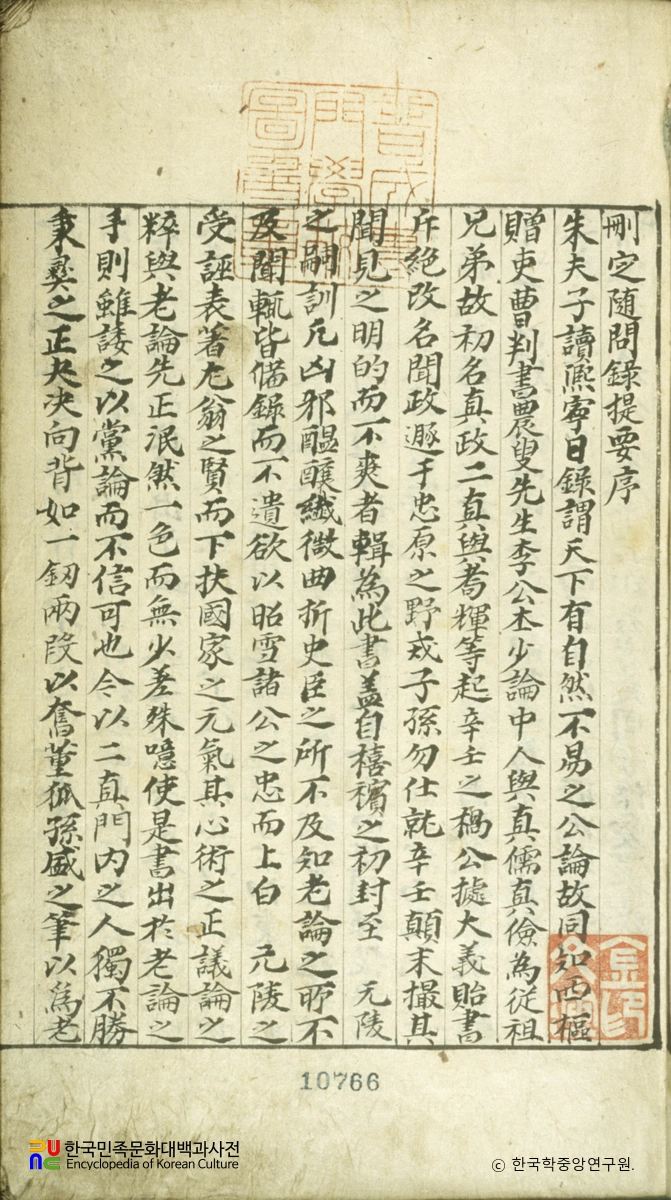 刪定隨問錄提要序
朱夫子讀熈寧日錄謂天下有自然不易之公論故同知西樞
贈吏曹判書農叟先生李公杢少論中人與真儒真儉為從祖
兄弟故初名真政二真與耈輝等起辛壬之禍公據大義貽書
斥絶改名聞政遯于忠原之野戒子孫勿仕就辛壬顛末撮其
聞見之明的而不爽者輯為此書盖自禧嬪之初封至 元陵
之嗣訓凡凶邪醞釀纖微曲折史臣之所不及知老論之所不
及聞輒皆備錄而不遺欲以昭雪諸公之忠而上白 元陵之
受誣表著尤翁之賢而下扶國家之元氣其心術之正議論之
粹與老論先正泯然一色而無少差殊噫使是書出於老論之
手則雖諉之以黨論而不信可也今以二真門內之人獨不勝
秉彛之正夬决向背如一釰兩段以奮董狐孫盛之筆以爲老
10766
한국민족문화대백과사전
Encyclopedia of Korean Culture
© 한국학중앙연구원.